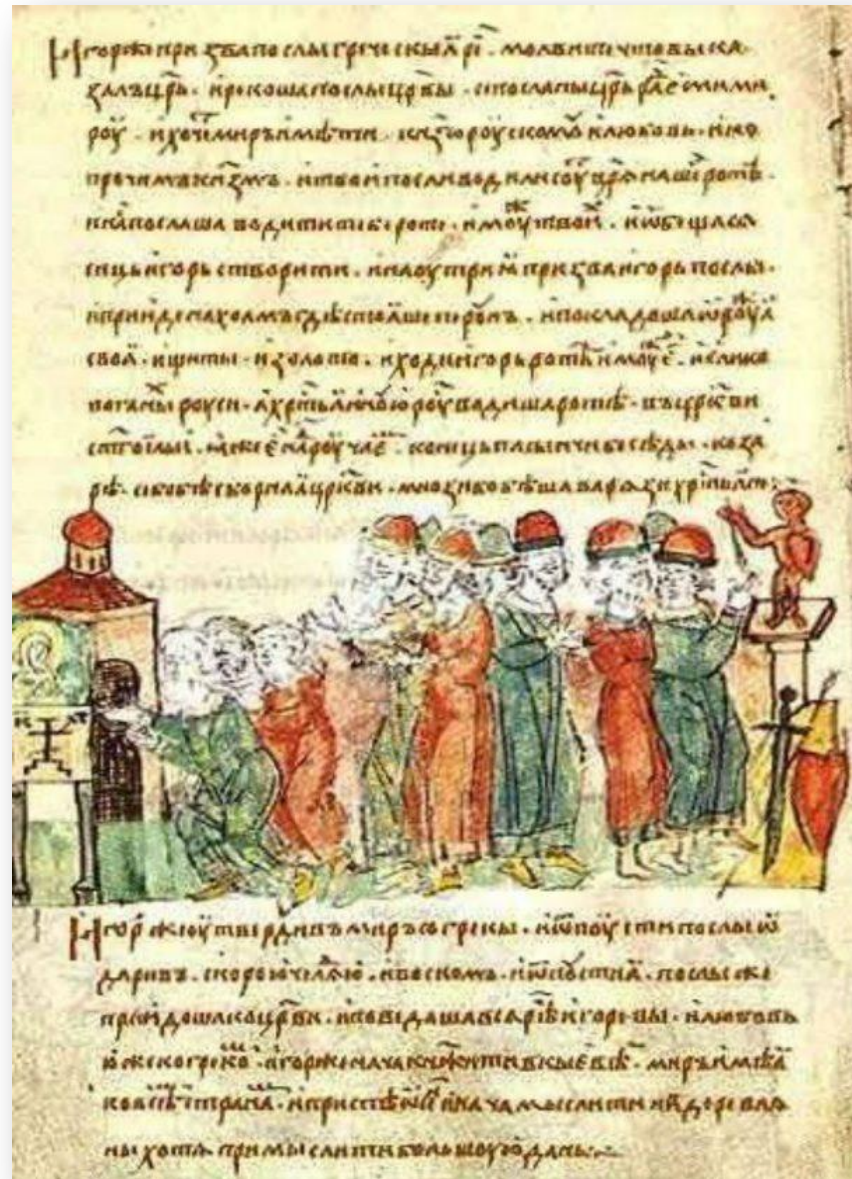 Игорже призва послы греческыӕ рⷱ҇е · молвите что вы ка
залъ цр҃ь · и рекоша послы цр҃вы · се посла ны цр҃ь рад̑ е̑ миⷬ҇ ми
роу · и хощеⷮ миръ имѣти · с кнѧзⷨ҇ роускомⷹ и любовь · и ко
прочимъ кнѧзⷨ҇ъ · и твои посли водили соуⷮ цр҃ѧ наш҃и ротѣ ·
и нⷭ҇ послаша водити тебе ротѣ · и моуⷤ твоиⷯ · и ѡбѣщасѧ
сице игорь створити · и наоутриӕ призва игорь послы ·
и приде на холмъ гдѣ стоӕше пероунъ · и покладоша ѡроуⷤӕ
своӕ · и щиты · и золото · и ходи игорь ротѣ и моуⷤ е҃ · и елико
поганыⷯ роуси · а хрⷭ҇тьӕноую роуⷭ҇ водиша ротѣ · въ цр҃кви
ст҃го ильи · ӕже еⷭ҇ наⷣ роучаеⷨ · конець пасынчи бесѣды · и коза
рѣ · се бо бѣ сборнаӕ цр҃кви · мнози бо бѣша варѧзи хрⷭ҇тиӕни :
Игорⷤ же оутвердивъ миръ со греки · и ѿпоусти послы ѡ
даривъ · скорою и челѧдью · и воскомъ · и ѿпусти ӕ · послы же
преидоша ко цр҃ви · и поведаша всѧ рѣчи игоревы · и любовь
юже ко грекоⷨ · игорже нача кнѧжити в кыевѣ · миръ имѣӕ
ко всѣⷨ странаⷨ · и приспѣ ѡсеⷩ и нача мыслити на̑ деревлѧ
ны хотѧ примыслити большоую дань :~